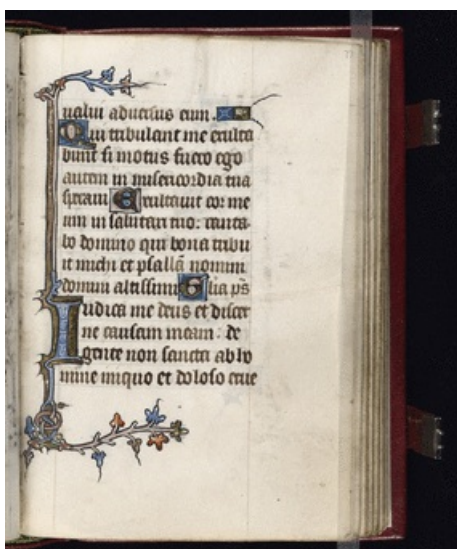 ualui aduersus eum.
Qui tribulant me exulta
bunt si motus fuero ego
autem in misericordia tua
speraui Exultauit cor me
um in salutari tuo: canta
bo domino qui bona tribu
it michi et psallā nomini
domini altissimi Glia ps
Iudica me deus et discer
ne causam meam: de
gente non sancta ab ho
mine iniquo et doloso erue